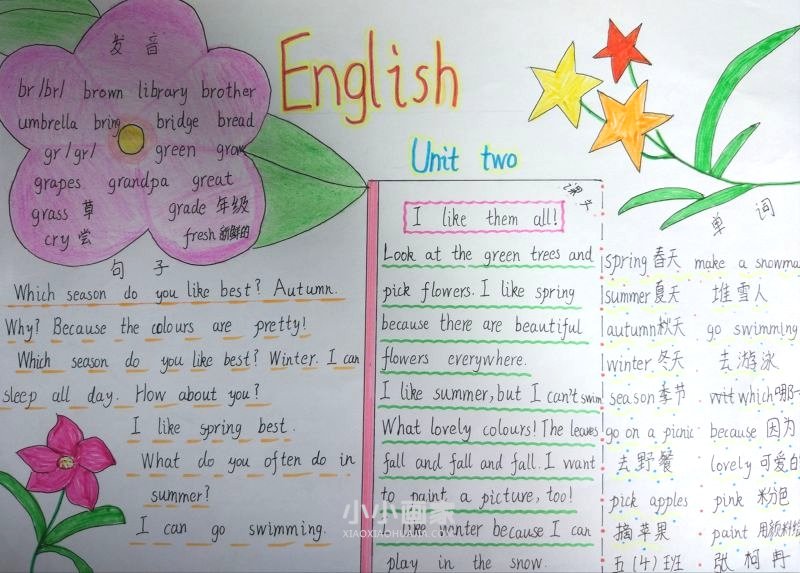 English
Unit two
发音
br /br/ brown library brother
umbrella bring bridge bread
gr /gr/ green grow
grapes grandpa great
grass 草 grade 年级
cry 尝 fresh 新鲜的
句子
Which season do you like best? Autumn.
Why? Because the colours are pretty!
Which season do you like best? Winter. I can
sleep all day. How about you?
I like spring best.
What do you often do in
summer?
I can go swimming.
课文
I like them all!
Look at the green trees and
pick flowers. I like spring
because there are beautiful
flowers everywhere.
I like summer, but I can't swim
What lovely colours! The leaves
fall and fall and fall. I want
to paint a picture, too!
I like winter because I can
play in the snow.
单词
spring 春天 make a snowma
summer 夏天 堆雪人
autumn 秋天 go swimming
winter 冬天 去游泳
season 季节 which 哪一
go on a picnic because 因为
去野餐 lovely 可爱的
pick apples pink 粉色
摘苹果 paint 用颜料绘
五(4)班 张柯冉
小小画家
XIAOXIAOHUAJIA.COM